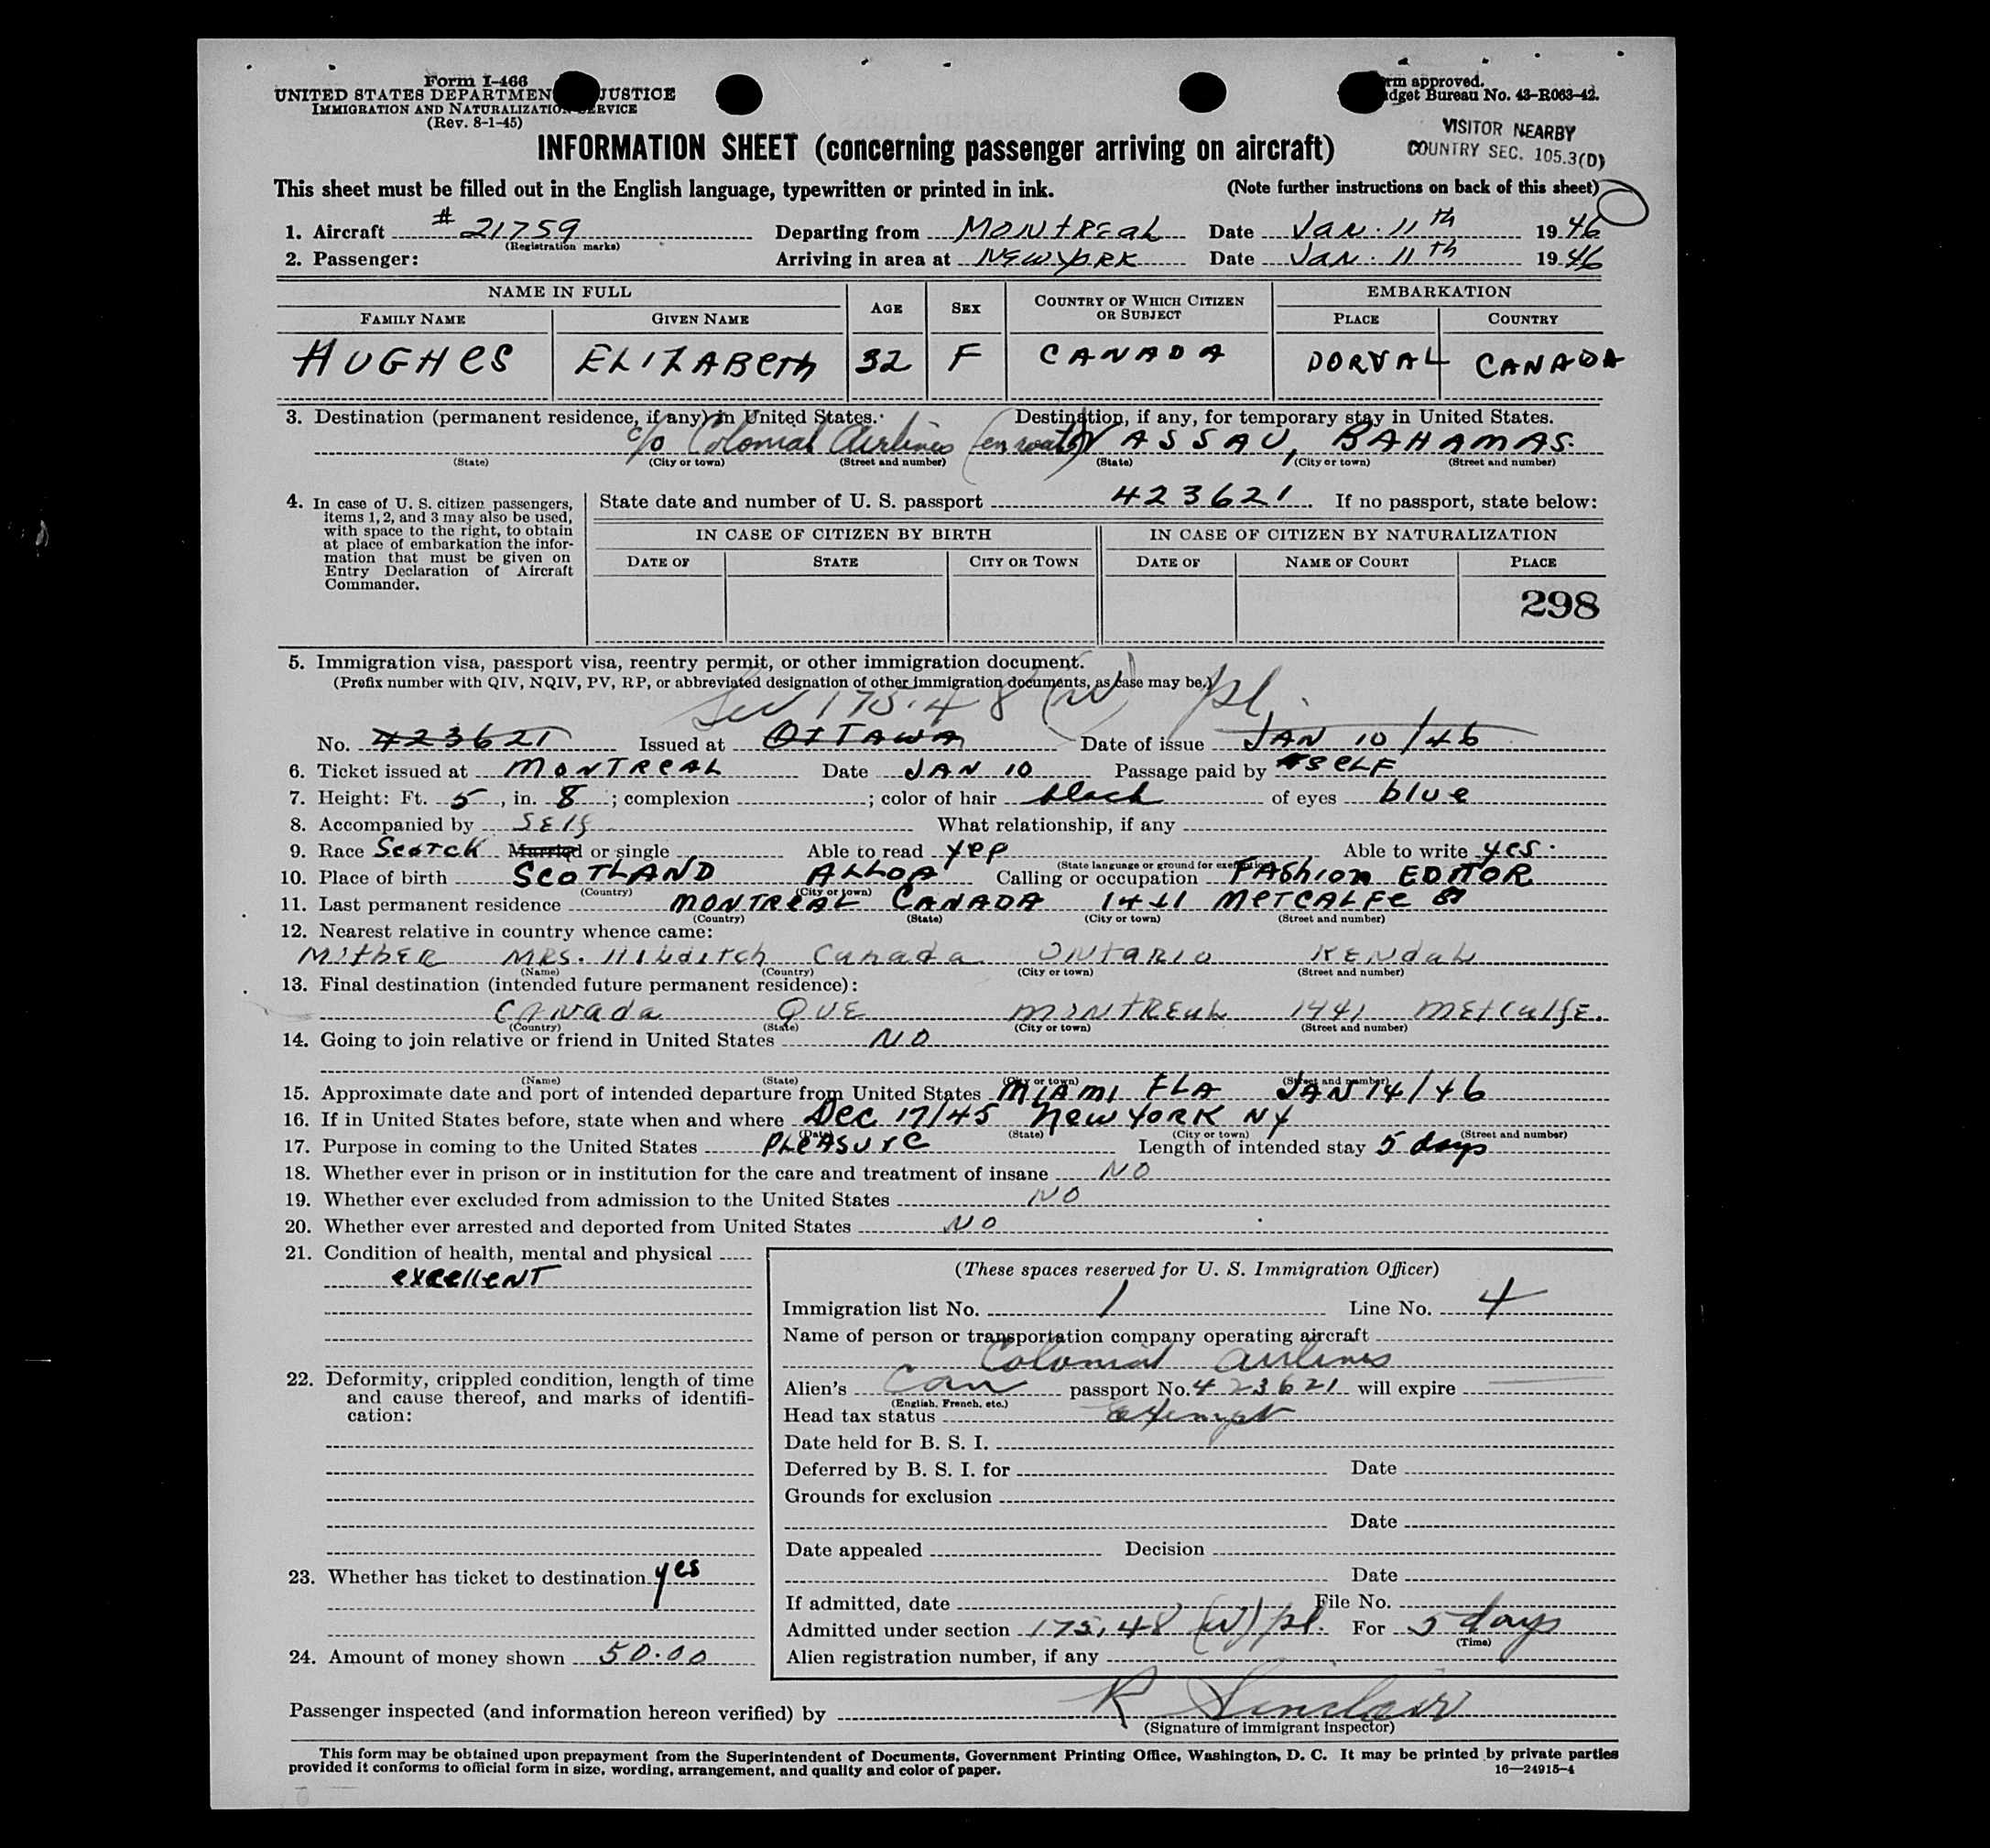 Form I-466
UNITED STATES DEPARTMEN JUSTICE
IMMIGRATION AND NATURALIZATION SERVICE
(Rev. 8-1-45)
rm approved.
dget Bureau No. 43-R063-42.
VISITOR NEARBY
COUNTRY SEC. 105.3(D)
INFORMATION SHEET (concerning passenger arriving on aircraft)
This sheet must be filled out in the English language, typewritten or printed in ink. (Note further instructions on back of this sheet)
1. Aircraft # 21759 Departing from MONTREAL Date JAN. 11th 1946
(Registration marks)
2. Passenger: Arriving in area at NEW YORK Date JAN. 11th 1946
NAME IN FULL AGE SEX COUNTRY OF WHICH CITIZEN OR SUBJECT EMBARKATION
FAMILY NAME GIVEN NAME PLACE COUNTRY
HUGHES ELIZABETH 32 F CANADA DORVAL CANADA
3. Destination (permanent residence, if any) in United States. Destination, if any, for temporary stay in United States.
c/o Colonial Airlines (en route) NASSAU, BAHAMAS.
(State) (City or town) (Street and number) (State) (City or town) (Street and number)
4. In case of U. S. citizen passengers, items 1, 2, and 3 may also be used, with space to the right, to obtain at place of embarkation the information that must be given on Entry Declaration of Aircraft Commander.
State date and number of U. S. passport 423621 If no passport, state below:
IN CASE OF CITIZEN BY BIRTH IN CASE OF CITIZEN BY NATURALIZATION
DATE OF STATE CITY OR TOWN DATE OF NAME OF COURT PLACE
298
5. Immigration visa, passport visa, reentry permit, or other immigration document.
(Prefix number with QIV, NQIV, PV, RP, or abbreviated designation of other immigration documents, as case may be.)
175.48 (W) pl.
No. 423621 Issued at OTTAWA Date of issue JAN 10/46
6. Ticket issued at MONTREAL Date JAN 10 Passage paid by SELF
7. Height: Ft. 5, in. 8; complexion ; color of hair black of eyes blue
8. Accompanied by SElf What relationship, if any
9. Race Scotch Married or single Able to read yep Able to write yes.
(State language or ground for exemption)
10. Place of birth SCOTLAND ALLOA Calling or occupation FAShion EDITOR
(Country) (City or town)
11. Last permanent residence MONTREAL CANADA 1441 METCALFE ST
(Country) (State) (City or town) (Street and number)
12. Nearest relative in country whence came:
MOTHER MRS. Canada ONTARIO KENDAL
(Name) (Country) (City or town) (Street and number)
13. Final destination (intended future permanent residence):
CANada QUE MONTREAL 1441 METCalfE.
(Country) (State) (City or town) (Street and number)
14. Going to join relative or friend in United States NO
(Name) (State) (City or town) (Street and number)
15. Approximate date and port of intended departure from United States MIAMI FLA JAN 14/46
16. If in United States before, state when and where Dec 17/45 NEW YORK NY
(Date) (State) (City or town) (Street and number)
17. Purpose in coming to the United States PLEASURE Length of intended stay 5 days
18. Whether ever in prison or in institution for the care and treatment of insane NO
19. Whether ever excluded from admission to the United States NO
20. Whether ever arrested and deported from United States NO
21. Condition of health, mental and physical
excellent
22. Deformity, crippled condition, length of time and cause thereof, and marks of identification:
23. Whether has ticket to destination yes
24. Amount of money shown 50.00
(These spaces reserved for U. S. Immigration Officer)
Immigration list No. 1 Line No. 4
Name of person or transportation company operating aircraft
Colonial Airlines
Alien's Can passport No. 423621 will expire
(English, French, etc.)
Head tax status exempt
Date held for B. S. I.
Deferred by B. S. I. for Date
Grounds for exclusion
Date
Date appealed Decision
Date
If admitted, date File No.
Admitted under section 175.48 (W) pl. For 5 days
(Time)
Alien registration number, if any
Passenger inspected (and information hereon verified) by R Sinclair
(Signature of immigrant inspector)
This form may be obtained upon prepayment from the Superintendent of Documents, Government Printing Office, Washington, D. C. It may be printed by private parties
provided it conforms to official form in size, wording, arrangement, and quality and color of paper. 16—24915-4